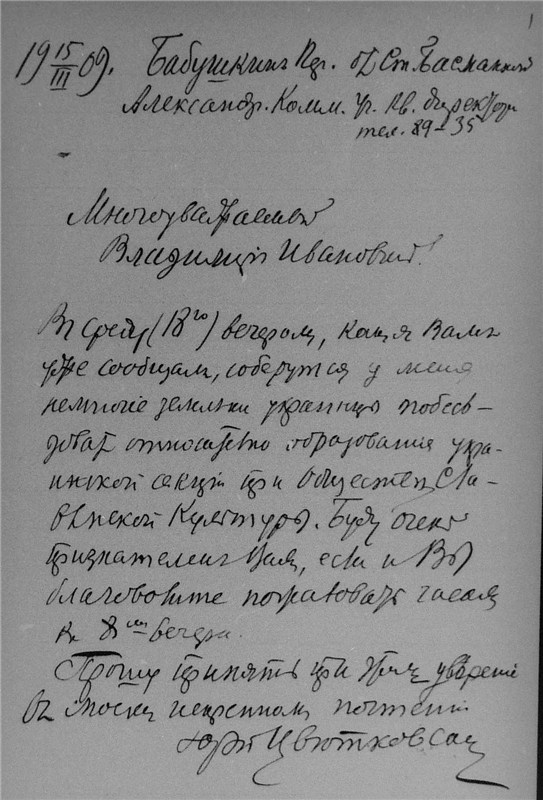 1
19 15/III 09. Бабушкинъ пер. бл. Ст. Басманной
Александр. Комм. Уч. Кв. директора
тел. 89-35
Многоуважаемый
Владиміръ Ивановичъ!
Въ среду (18го) вечеромъ, какъ я Вамъ
уже сообщалъ, соберутся у меня
немногіе земляки украинцы побесѣ-
довать относительно образованія укра-
инской секціи при Обществѣ Сла-
вянской Культуры. Буду очень
признателенъ Вамъ, если и Вы
благоволите пожаловать часамъ
къ 8ми вечера.
Прошу принять при этомъ увѣреніе
въ моемъ искреннемъ почтеніи
Юрій Цвѣтковскій